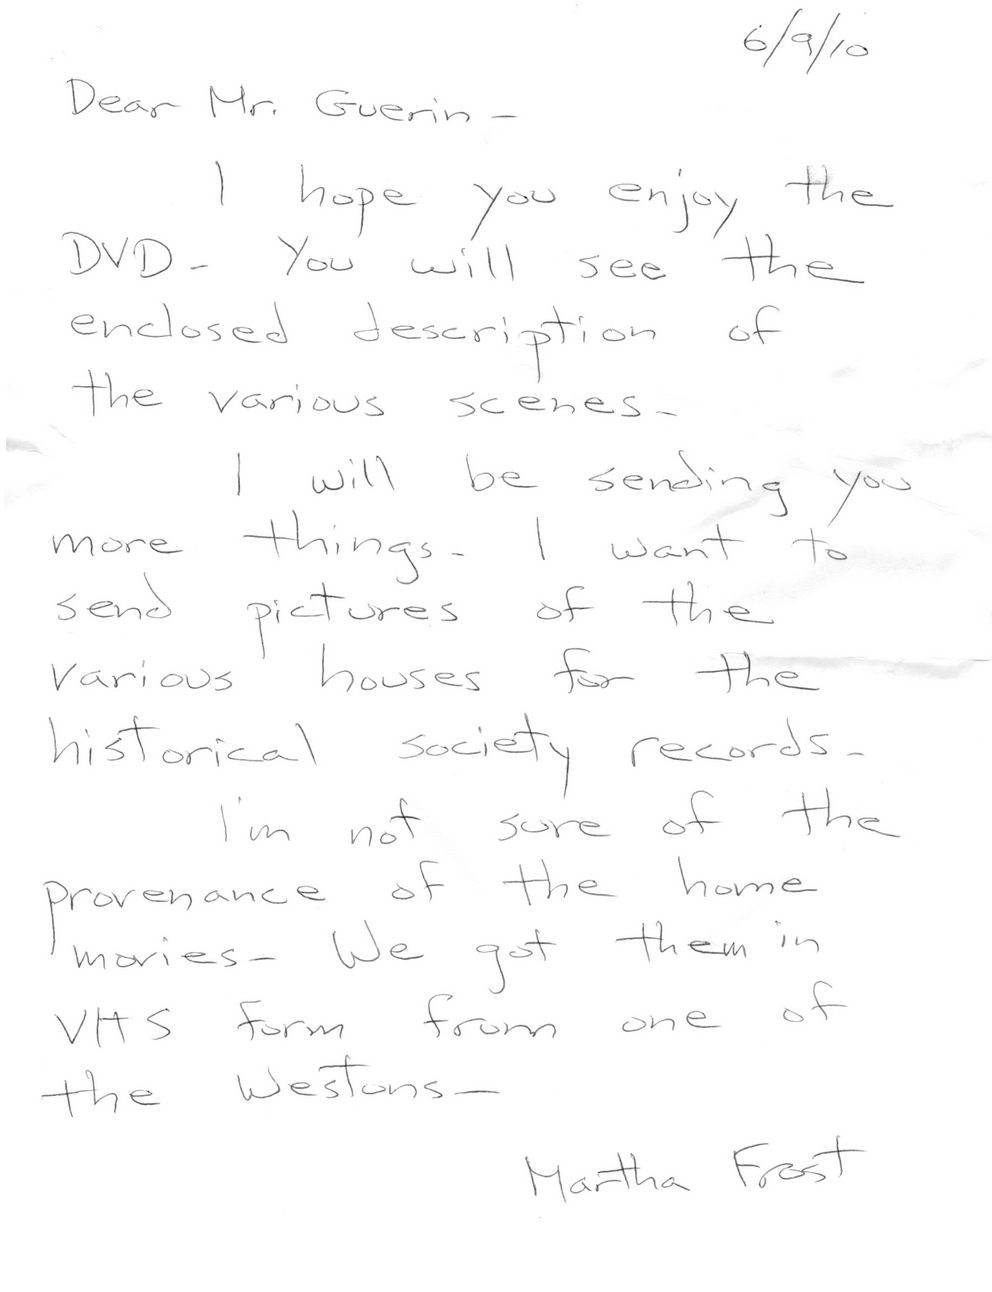 6/9/10
Dear Mr. Guerin -
I hope you enjoy the
DVD - You will see the
enclosed description of
the various scenes -
I will be sending you
more things - I want to
send pictures of the
various houses for the
historical society records -
I'm not sure of the
provenance of the home
movies - We got them in
VHS form from one of
the Westons -
Martha Frost